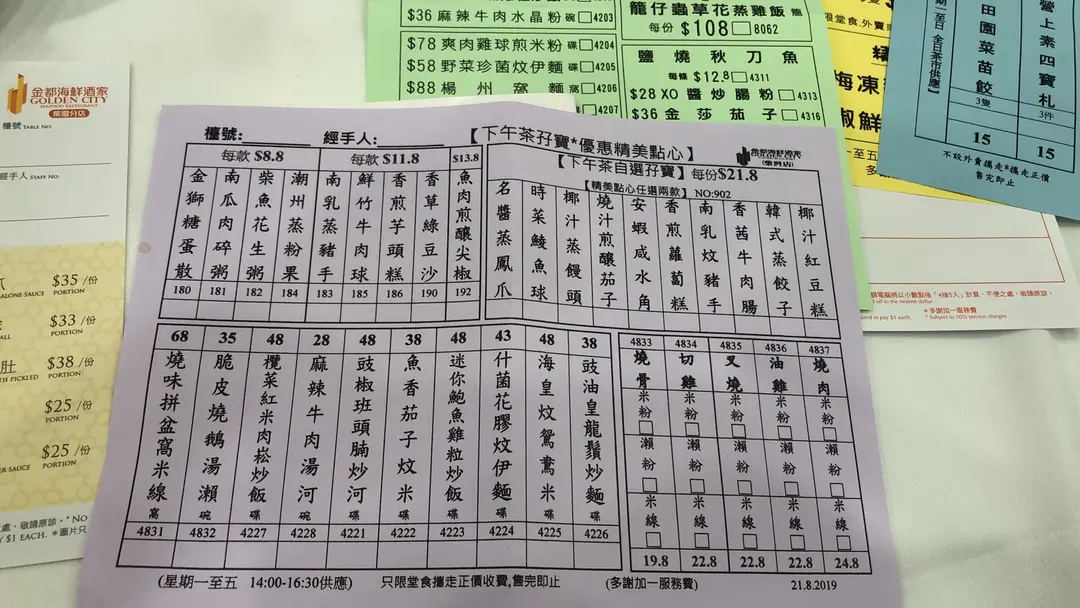 金都海鮮酒家
GOLDEN CITY
SEAFOOD RESTAURANT
檯號 TABLE NO.
經手人 STAFF NO.
$35 /份
PORTION
$33 /份
PORTION
$38 /份
PORTION
$25 /份
PORTION
$25 /份
PORTION
$36 麻辣牛肉水晶粉 碗 4203
$78 爽肉雞球煎米粉 碟 4204
$58 野菜珍菌炆伊麵 碟 4205
$88 楊州窩麵 4206
4207
籠仔蟲草花蒸雞飯 籠
每份 $108 8062
鹽燒秋刀魚
每條 $12.8 4311
$28 XO醬炒腸粉 4313
$36 金莎茄子 4316
田園菜苗餃
3隻
15
營上素四寶札
3件
15
不設外賣攜走*攜走正價
售完即止
檯號:
經手人:
【下午茶孖寶*優惠精美點心】
金都海鮮酒家
GOLDEN CITY
每款 $8.8
每款 $11.8
$13.8
金獅糖蛋散 180
南瓜肉碎粥 181
柴魚花生粥 182
潮州蒸粉果 184
南乳蒸豬手 183
鮮竹牛肉球 185
香煎芋頭糕 186
香草綠豆沙 190
魚肉煎釀尖椒 192
【下午茶自選孖寶】每份$21.8
【精美點心任選兩款】 NO:902
名醬蒸鳳爪
時菜鯪魚球
椰汁蒸饅頭
燒汁煎釀茄子
安蝦咸水角
香煎蘿蔔糕
南乳炆豬手
香茜牛肉腸
韓式蒸餃子
椰汁紅豆糕
68 燒味拼盆窩米線 窩 4831
35 脆皮燒鵝湯瀨 碗 4832
48 欖菜紅米肉崧炒飯 碟 4227
28 麻辣牛肉湯河 碗 4228
48 豉椒班頭腩炒河 碟 4221
38 魚香茄子炆米 碟 4222
48 迷你鮑魚雞粒炒飯 碟 4223
43 什菌花膠炆伊麵 碟 4224
48 海皇炆鴛鴦米 碟 4225
38 豉油皇龍鬚炒麵 碟 4226
4833 燒骨 米粉 瀨粉 米線 19.8
4834 切雞 米粉 瀨粉 米線 22.8
4835 叉燒 米粉 瀨粉 米線 22.8
4836 油雞 米粉 瀨粉 米線 22.8
4837 燒肉 米粉 瀨粉 米線 24.8
(星期一至五 14:00-16:30供應)
只限堂食攜走正價收費,售完即止
(多謝加一服務費)
21.8.2019
*多謝加一服務費
* Subject to 10% service charges